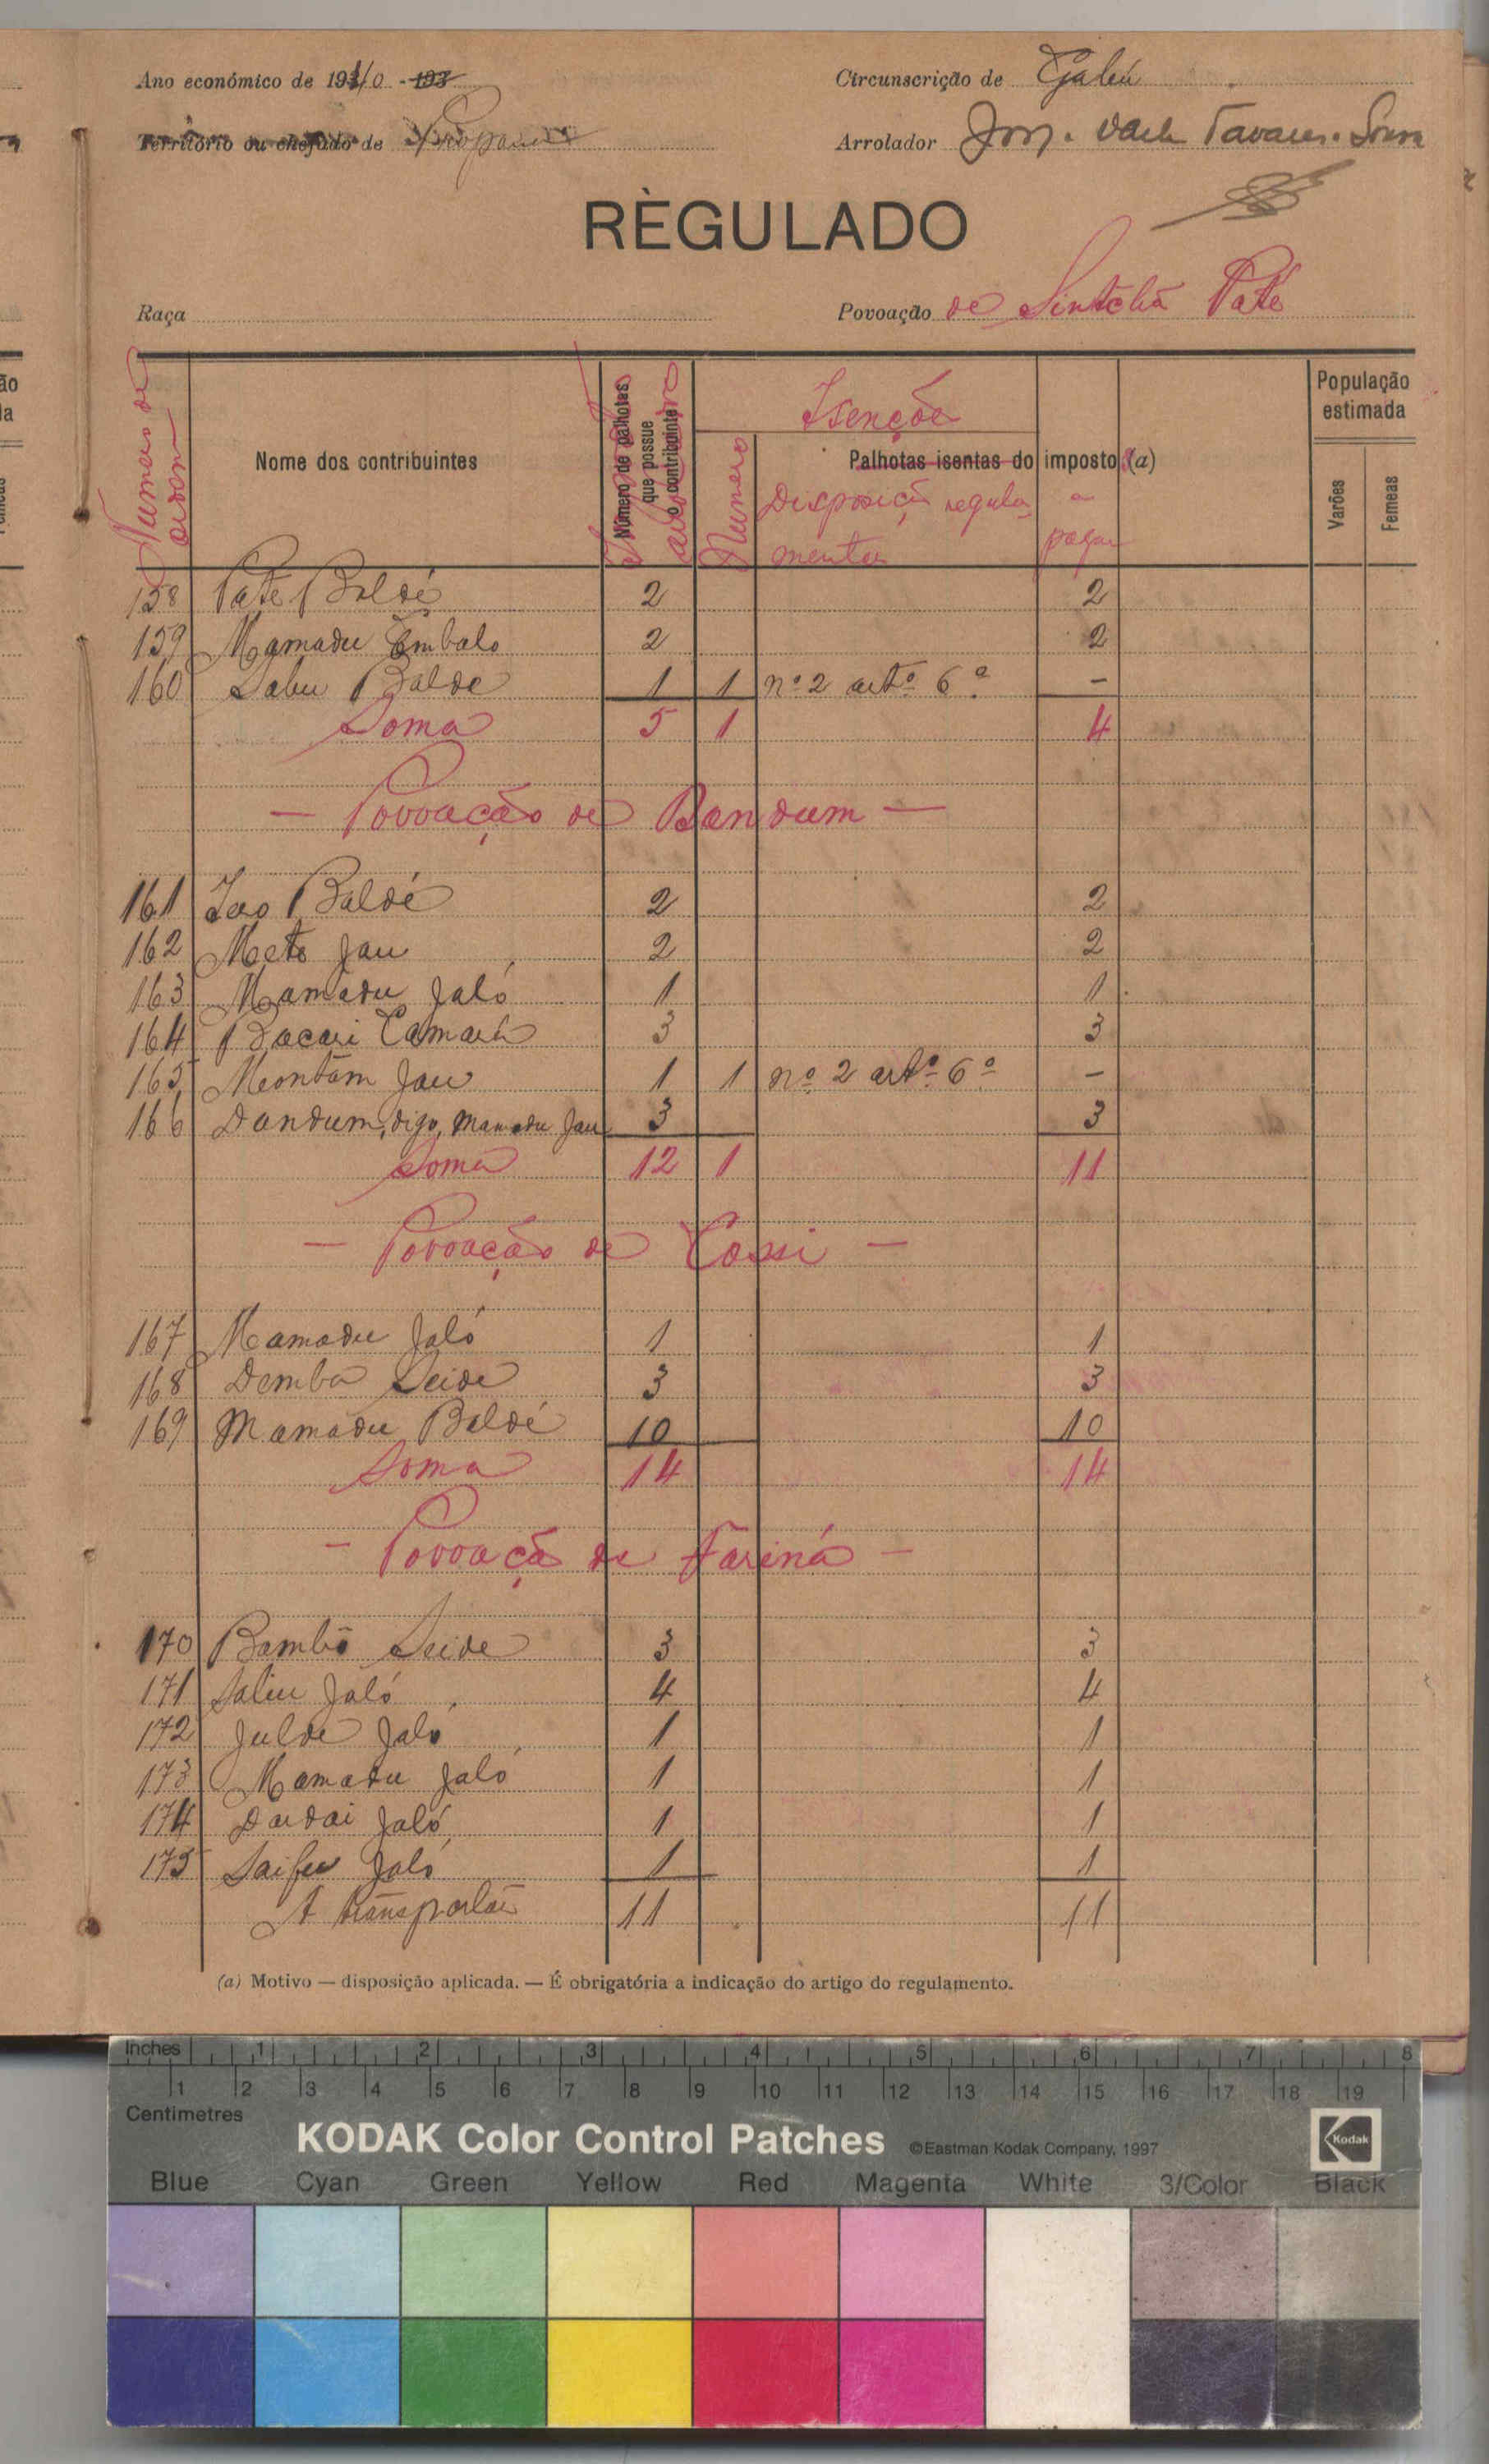 Ano económico de 1940 - 193
Circunscrição de Gabú
Território ou chefado de Propana
Arrolador Tavares. Sousa
RÈGULADO
Raça
Povoação de Sintchã Paté
Numero de ordem
Nome dos contribuintes
Número de palhotas que possue o contribuinte
Isenções
Numero
Palhotas isentas do imposto (a)
Disposição regulamentar
a pagar
População estimada
Varões
Femeas
158 Paté Baldé 2 2
159 Mamadu Embalo 2 2
160 Sabu Balde 1 1 nº 2 artº 6º -
Soma 5 1 4
— Povoação de Bandum —
161 Iao Baldé 2 2
162 Meta Jau 2 2
163 Mamadu Jaló 1 1
164 Bacari Camará 3 3
165 Montam Jau 1 1 nº 2 artº 6º -
166 Dandum, digo, Mamadu Jau 3 3
Soma 12 1 11
— Povoação de Cossi —
167 Mamadu Jaló 1 1
168 Demba Seide 3 3
169 Mamadu Baldé 10 10
Soma 14 14
- Povoação de Fariná -
170 Bambô Seide 3 3
171 Saliu Jaló 4 4
172 Julde Jaló 1 1
173 Mamadu Jaló 1 1
174 Daidai Jaló 1 1
175 Saifu Jaló 1 1
A transportar 11 11
(a) Motivo — disposição aplicada. — É obrigatória a indicação do artigo do regulamento.
Inches 1 2 3 4 5 6 7 8
1 2 3 4 5 6 7 8 9 10 11 12 13 14 15 16 17 18 19
Centimetres
KODAK Color Control Patches ©Eastman Kodak Company, 1997 Kodak
Blue Cyan Green Yellow Red Magenta White 3/Color Black